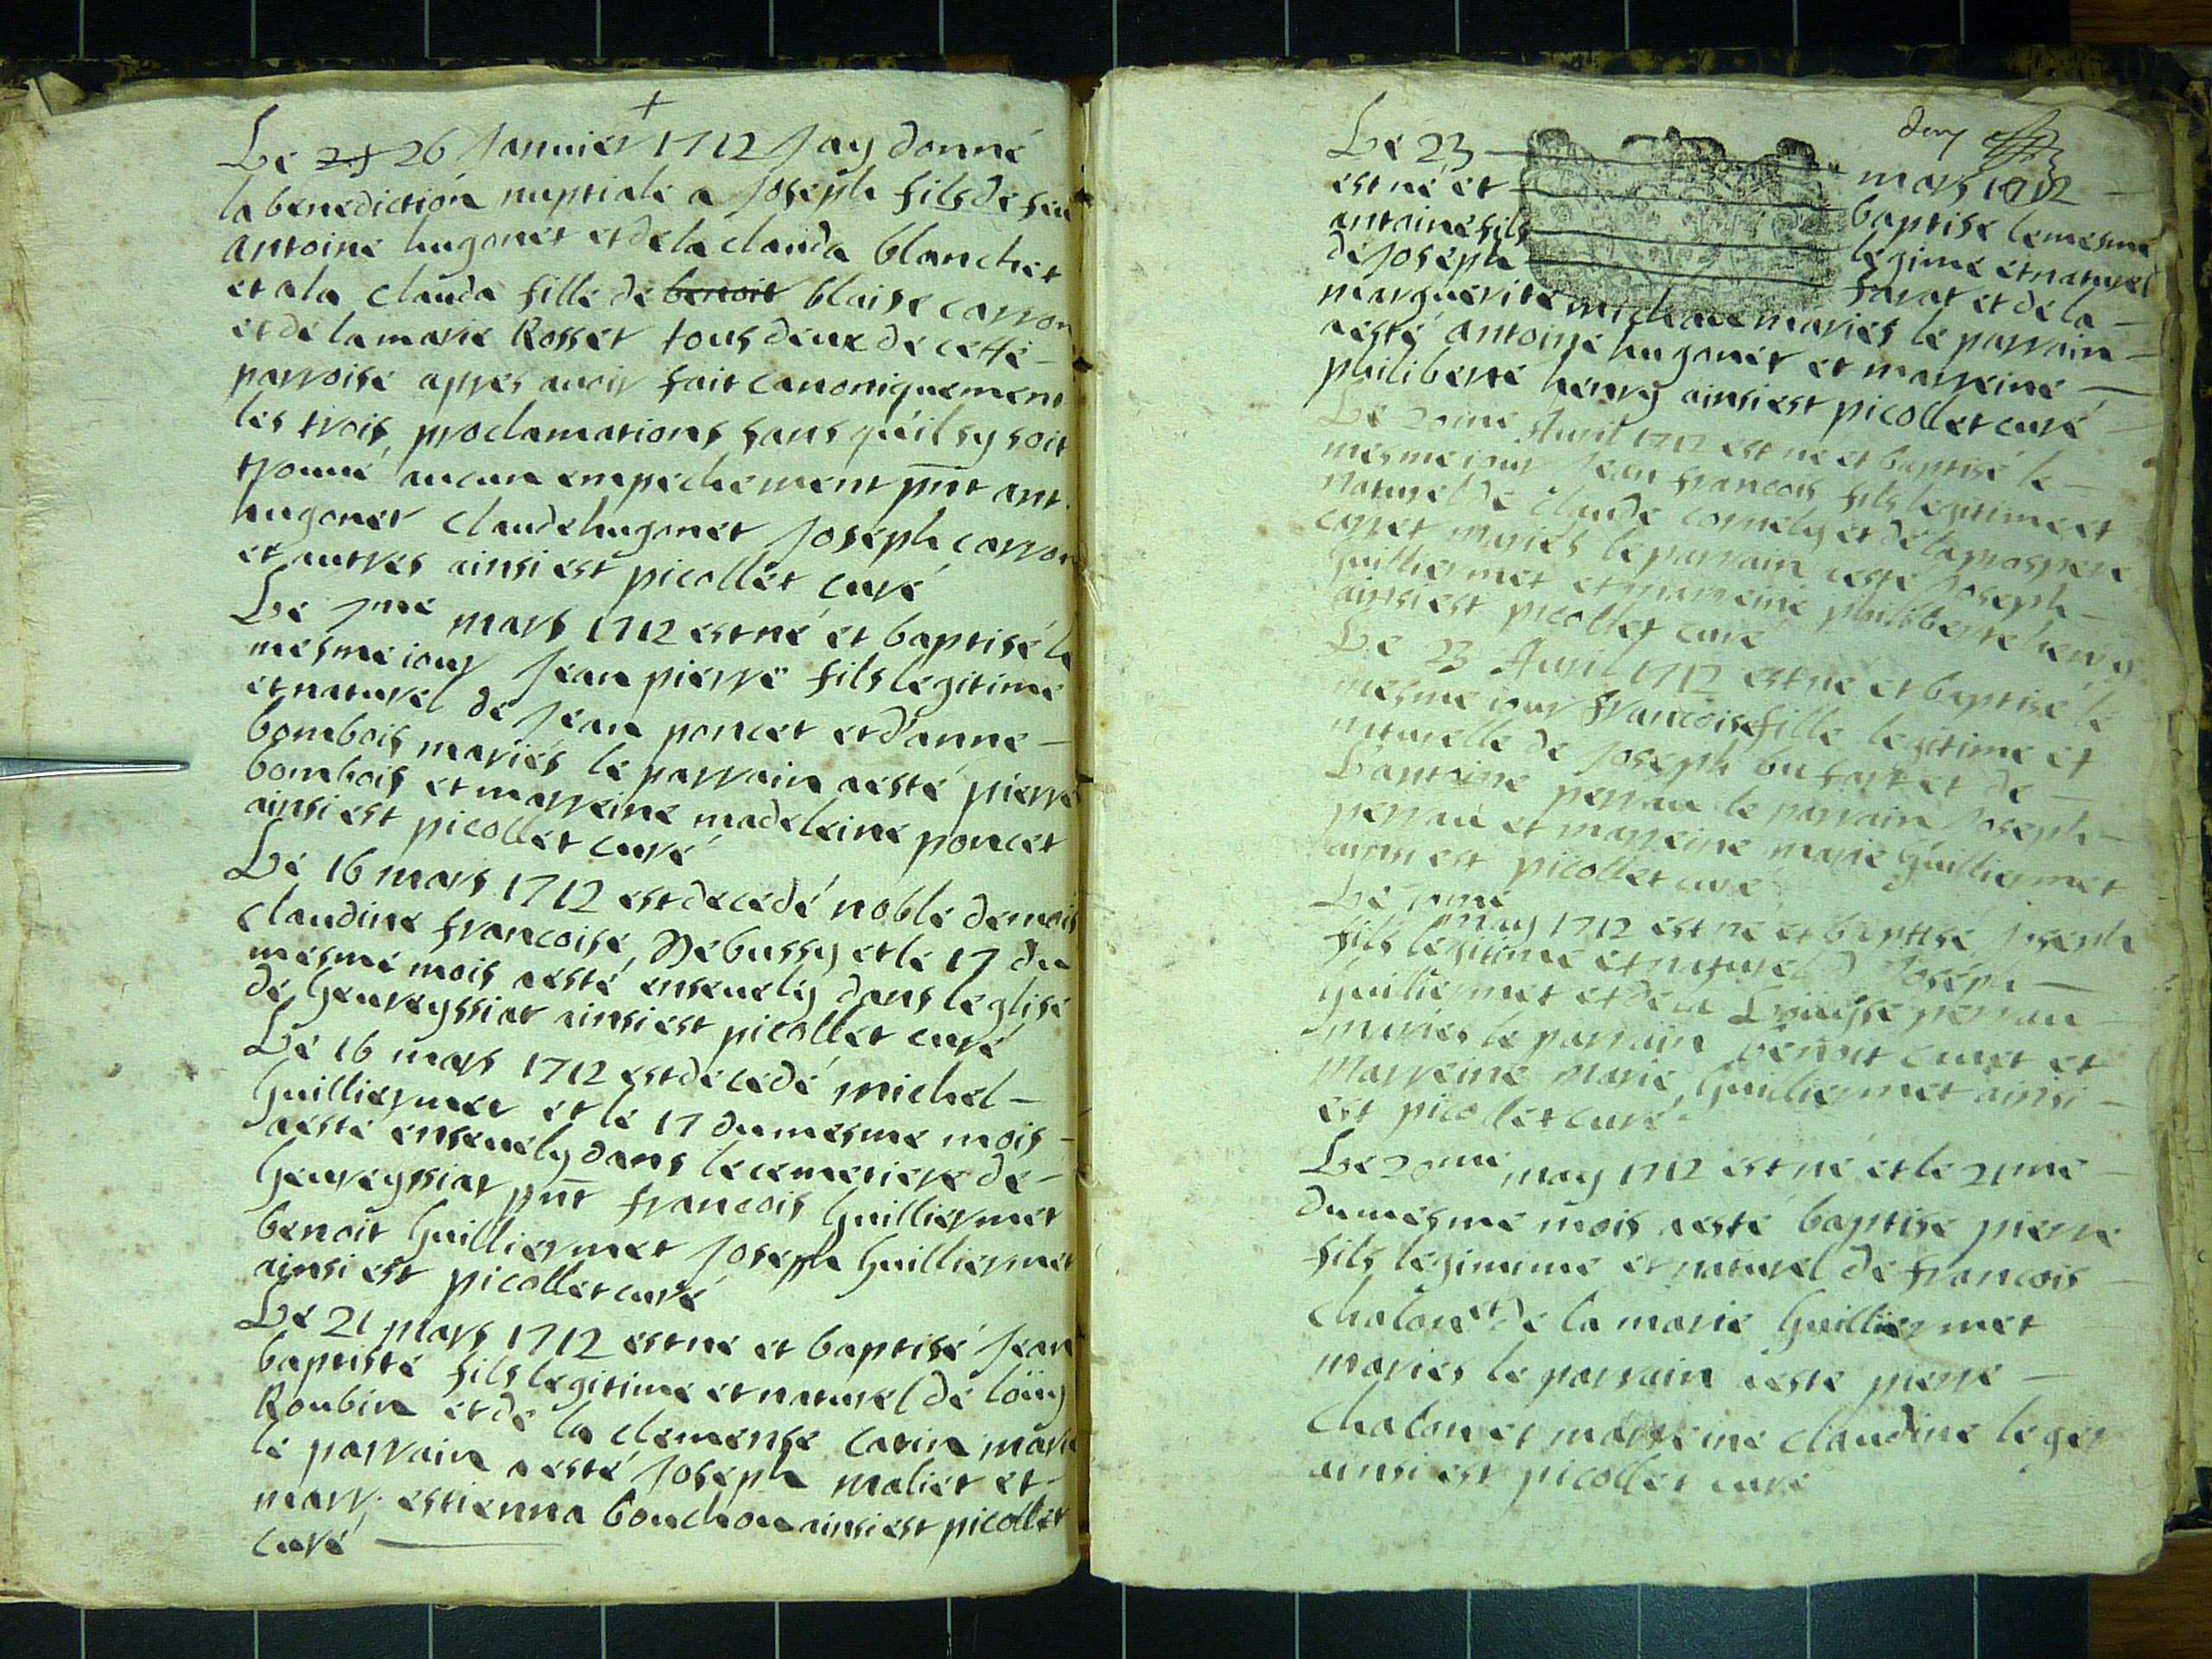 Le 26 Januier 1712 Jay donné
la benediction nuptiale a Joseph fils de feu
antoine hugonet et de la clauda blanchet
et a la clauda fille de benoit blaise carron
et de la marie Rosset tous deux de cette
parroise apres auoir fait canoniquement
les trois proclamations sans quil sy soit
trouué aucun empechement pnt ant.
hugonet claude hugonet Joseph carron
et autres ainsi est picollet curé
Le mars 1712 est né et baptisé le
mesme iour Jean pierre fils legitime
et naturel de Jean poncet et d'anne
bombois mariés le parrain a esté pierre
bombois et marreine madeleine poncet
ainsi est picollet curé
Le 16 mars 1712 est decedé noble demois
claudine francoise Debussy et le 17 du
mesme mois a esté enseuely dans leglise
de heureyssiat ainsi est picollet curé
Le 16 mars 1712 est decedé michel
Guilliermet et le 17 du mesme mois
a esté enseuely dans le cemetiere de
heureyssiat pnt francois Guilliermet
benoit Guilliermet Joseph Guilliermet
ainsi est picollet curé
Le 21 mars 1712 est né et baptisé Jean
baptiste fils legitime et naturel de loüy
Roubin et de la clemense catin marié
le parrain a esté Joseph maliet et
marr. estienna bouchou ainsi est picollet
curé
Le 23 mars 1712
est né et baptisé le mesme
antoine fils legime et naturel
de Joseph farat et de la
marguerite mariés le parrain
a esté antoine hugonet et marreine
philiberte henry ainsi est picollet curé
Le Auril 1712 est né et baptisé le
mesme iour Jean francois fils legitime et
naturel de claude cornely et de la prospere
mariés le parrain a esté Joseph
Guilliermet et marreine philiberte henry
ainsi est picollet curé
Le 23 Auril 1712 est né et baptisé le
mesme iour francoise fille legitime et
naturelle de Joseph bufart et de
perrau le parrain Joseph
perrau et marreine marie Guilliermet
ainsi est picollet curé
Le may 1712 est né et baptisé Joseph
fils legitime et naturel d Joseph
Guilliermet et de la perrau
mariés le parrain benoit et
Marreine marie Guilliermet ainsi
est picollet curé
Le 20me may 1712 est né et le 21me
du mesme mois a esté baptisé pierre
fils legimime et naturel de francois
chalon et de la marie Guilliermet
mariés le parrain a esté pierre
chalon et marreine claudine leger
ainsi est picollet curé